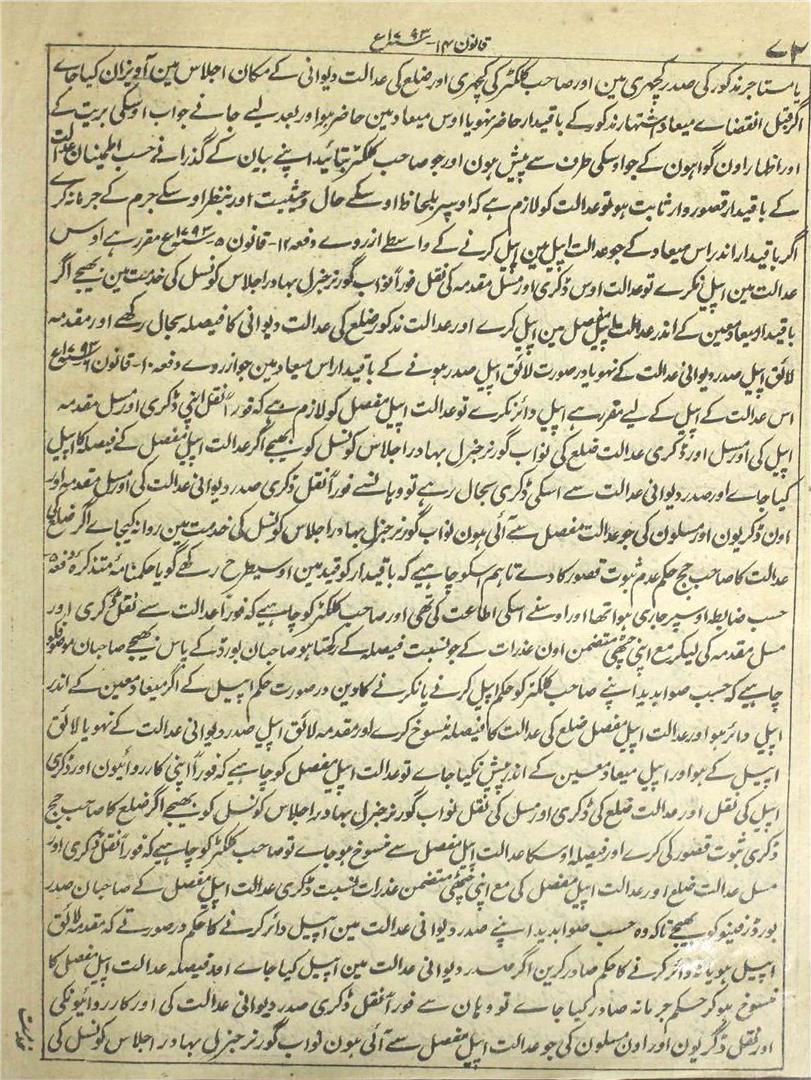 ۷۲ قانون ۱۴- ۱۷۹۳ع
یا مستاجر مذکور کی صدر کچہری مین اور صاحب کلکٹر کی کچہری اور ضلع کی عدالت دیوانی کے مکان اجلاس مین آویزان کیا جاے
اگر قبل انقضاے میعاد اشتہار مذکور کے باقیدار حاضر نہو یا اوس میعاد مین حاضر ہو اور بعد لیے جانے جواب اوسکی بریت کے
اور اظہار اون گواہون کے جو اوسکی طرف سے پیش ہون اور جو صاحب کلکٹر بتائید اپنے بیان کے گذرانے حسب اطمینان عدالت
کے باقیدار قصور وار ثابت ہو تو عدالت کو لازم ہے کہ اوسپر بلحاظ اوسکے حال و حیثیت اور بنظر اوسکے جرم کے جرمانہ کرے
اگر باقیدار اندر اس میعاد کے جو عدالت اپیل مین اپیل کرنے کے واسطے ازروے دفعہ ۱۲- قانون ۵- ۱۷۹۳ع مقرر ہے اوس
عدالت مین اپیل نکرے تو عدالت اوس ڈکری اور مسل مقدمہ کی نقل فوراً نواب گورنر جنرل بہادر اجلاس کونسل کی خدمت مین بھیجے اگر
باقیدار میعاد معین کے اندر عدالت اپیل مفصل مین اپیل کرے اور عدالت مذکور ضلع کی عدالت دیوانی کا فیصلہ بحال رکھے اور مقدمہ
لائق اپیل صدر دیوانی عدالت کے نہو یا درصورت لائق اپیل صدر ہونے کے باقیدار اس میعاد مین جو ازروے دفعہ ۱۰- قانون ۶ ۱۷۹۳ع
اس عدالت کے اپیل کے لیے مقرر ہے اپیل دائر نکرے تو عدالت اپیل مفصل کو لازم ہے کہ فوراً نقل اپنی ڈکری اور مسل مقدمہ
اپیل کی اور مسل اور ڈکری عدالت ضلع کی نواب گورنر جنرل بہادر اجلاس کونسل کو بھیجے اگر عدالت اپیل مفصل کے فیصلہ کا اپیل
کیا جاے اور صدر دیوانی عدالت سے اسکی ڈکری بحال رہے تو وہانسے فوراً نقل ڈکری صدر دیوانی عدالت کی اور مسل مقدمہ اور
اون ڈکریون اور مسلون کی جو عدالت مفصل سے آئی ہون نواب گورنر جنرل بہادر اجلاس کونسل کی خدمت مین روانہ کیجاے اگر ضلع کی
عدالت کا صاحب جج حکم عدم ثبوت قصور کا دے تاہم اسکو چاہیے کہ باقیدار کو قید مین اوسیطرح رکھے گویا حکمنامہ متذکرہ دفعہ ۵
حسب ضابطہ اوسپر جاری ہوا تھا اور اوسنے اسکی اطاعت کی تھی اور صاحب کلکٹر کو چاہیے کہ فوراً عدالت سے نقل ڈکری اور
مسل مقدمہ کی لیکر مع اپنی چٹھی متضمن اون عذرات کے جو نسبت فیصلہ کے رکھتا ہو صاحبان بورڈ کے پاس بھیجے صاحبان موصوف کو
چاہیے کہ حسب صوابدید اپنے صاحب کلکٹر کو حکم اپیل کرنے یا نکرنے کا دین درصورت حکم اپیل کے اگر میعاد معین کے اندر
اپیل دائر ہو اور عدالت اپیل مفصل ضلع کی عدالت کا فیصلہ منسوخ کرے اور مقدمہ لائق اپیل صدر دیوانی عدالت کے نہو یا لائق
اپیل کے ہو اور اپیل میعاد معین کے اندر پیش نکیا جاے تو عدالت اپیل مفصل کو چاہیے کہ فوراً اپنی کارروائیون اور ڈکری
اپیل کی نقل اور عدالت ضلع کی ڈکری اور مسل کی نقل نواب گورنر جنرل بہادر اجلاس کونسل کو بھیجے اگر ضلع کا صاحب جج
ڈکری ثبوت قصور کی کرے اور فیصلہ اوسکا عدالت اپیل مفصل سے منسوخ ہو جاے تو صاحب کلکٹر کو چاہیے کہ فوراً نقل ڈکری اور
مسل عدالت ضلع اور عدالت اپیل مفصل کی مع اپنی چٹھی متضمن عذرات نسبت ڈکری عدالت اپیل مفصل کے صاحبان صدر
بورڈ رفینو کو بھیجے تاکہ وہ حسب صوابدید اپنے صدر دیوانی عدالت مین اپیل دائر کرنے کا حکم درصورتے کہ مقدمہ لائق
اپیل ہو یا نہ دائر کرنے کا حکم صادر کرین اگر صدر دیوانی عدالت مین اپیل کیا جاے اور فیصلہ عدالت اپیل مفصل کا
منسوخ ہو کر حکم جرمانہ صادر کیا جاے تو وہان سے فوراً نقل ڈکری صدر دیوانی عدالت کی اور کارروائیونکی
اور نقل ڈگریون اور اون مسلون کی جو عدالت اپیل مفصل سے آئی ہون نواب گورنر جنرل بہادر اجلاس کونسل کی